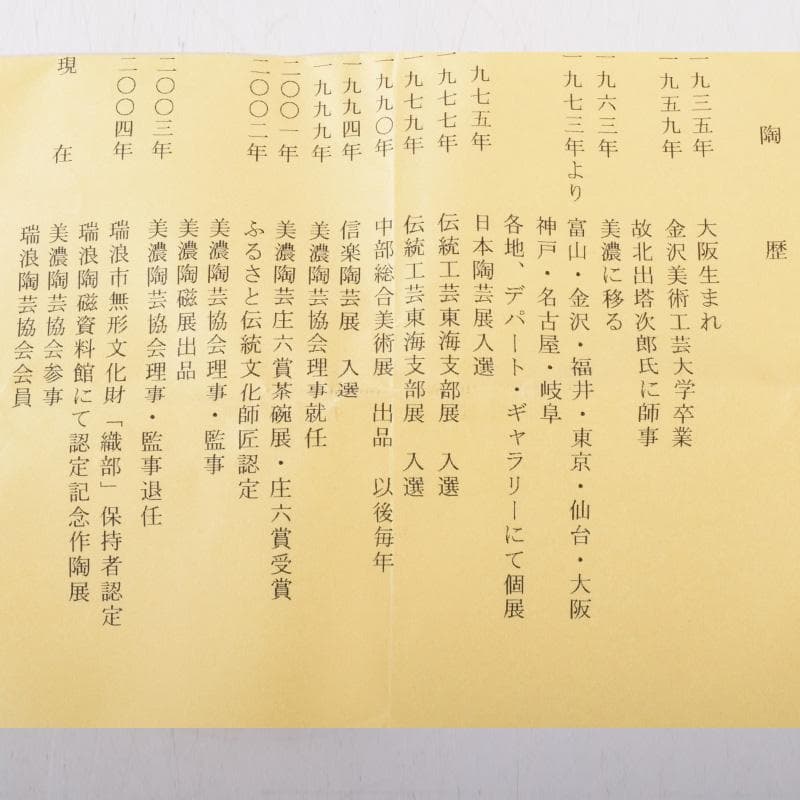 陶歴
一九三五年 大阪生まれ
一九五九年 金沢美術工芸大学卒業
故北出塔次郎氏に師事
一九六三年 美濃に移る
一九七三年より 富山・金沢・福井・東京・仙台・大阪
神戸・名古屋・岐阜
各地、デパート・ギャラリーにて個展
九七五年 日本陶芸展入選
一九七七年 伝統工芸東海支部展 入選
一九七九年 伝統工芸東海支部展 入選
一九九〇年 中部総合美術展 出品 以後毎年
一九九四年 信楽陶芸展 入選
一九九九年 美濃陶芸協会理事就任
二〇〇一年 美濃陶芸庄六賞茶碗展・庄六賞受賞
二〇〇二年 ふるさと伝統文化師匠認定
美濃陶芸協会理事・監事
美濃陶磁展出品
二〇〇三年 美濃陶芸協会理事・監事退任
二〇〇四年 瑞浪市無形文化財「織部」保持者認定
瑞浪陶磁資料館にて認定記念作陶展
現在 美濃陶芸協会参事
瑞浪陶芸協会会員